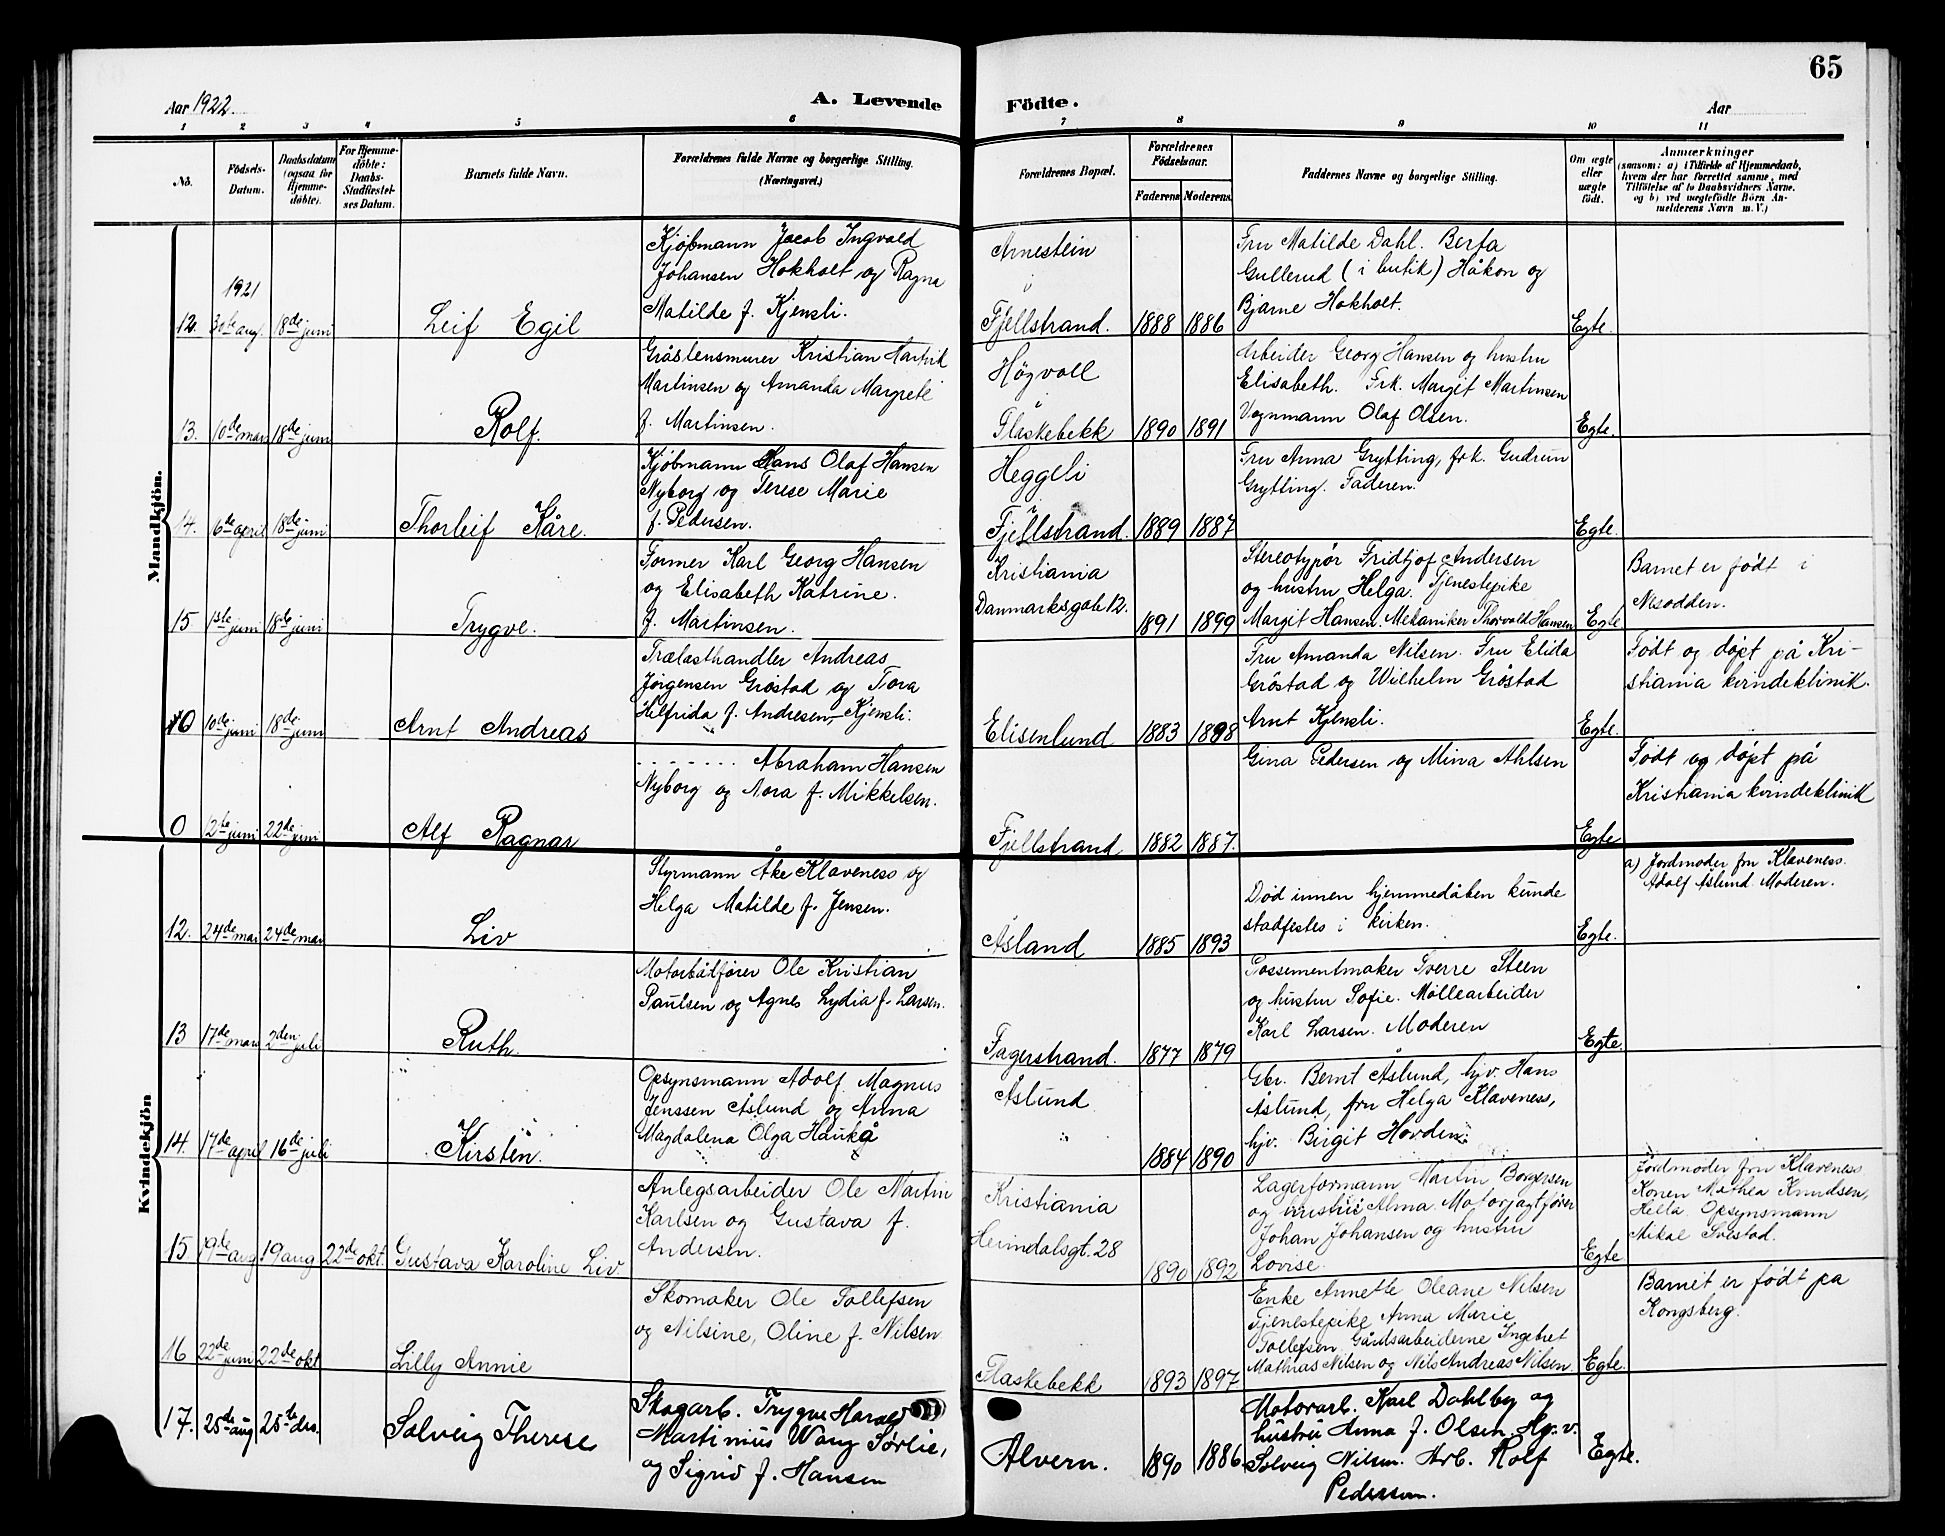 65
Aar 1922.
A. Levende Födte.
Aar
1 2 3 4 5 6 7 8 9 10 11
No.
Födsels-Datum.
Daabsdatum (ogsaa for Hjemme-döbte).
For Hjemme-döbte: Daabs-Stadfæstel-ses Datum.
Barnets fulde Navn.
Forældrenes fulde Navne og borgerlige Stilling. (Næringsvei.)
Forældrenes Bopæl.
Forældrenes Födselsaar.
Faderens Moderens
Faddernes Navne og borgerlige Stilling.
Om ægte eller uægte födt.
Anmærkninger
(saasom: a) i Tilfælde af Hjemmedaab,
hvem der har forrettet samme, med
Tilföielse af to Daabsvidners Navne.
og b) ved uægtefödte Börn An-
melderens Navn m. V.)
Mandkjön.
1921
12. 30te aug. 18de juni
Leif Egil
Kjøbmann Jacob Ingvald
Johansen Hokholt og Ragna
Matilde f. Kjensli.
Arnestein
i
Fjellstrand. 1888 1886
Fru Matilde Dahl. Berta
Gullerud (i butik) Håkon og
Bjarne Hokholt.
Egte.
13. 10de mars 18de juni
Rolf.
Gråstensmurer Kristian Hartvik
Martinsen og Amanda Margrete
f. Martinsen.
Högvoll
Flaskebekk 1890 1891
Arbeider Georg Hansen og hustru
Elisabeth. Frk. Margit Martinsen
Vognmann Olaf Olsen.
Egte.
14. 6de april 18de juni
Thorleif Kåre.
Kjøbmann Hans Olaf Hansen
Nyborg og Terese Marie
f. Pedersen.
Heggeli
i
Fjellstrand. 1889 1887
Fru Anna Grytting, frk. Gudrun
Grytting. Faderen.
Egte.
15 1ste juni 18de juni
Trygve.
Former Karl Georg Hansen
og Elisabeth Katrine.
f. Martinsen.
Kristiania
Danmarksgate 12. 1891 1899
Stereotypør Fridtjof Andersen
og hustru Helga. Tjenestepike
Margit Hansen. Mekaniker Thorvald Hansen
Egte
Barnet er født i
Nesodden.
0 10de juni 18de juni
Arnt Andreas
Trælasthandler Andreas
Jørgensen Gröstad og Tora
Hilfrida f. Andresen, Kjensli.
Elisenlund 1883 1898
Fru Amanda Nilsen. Fru Elida
Gröstad og Wilhelm Gröstad
Arnt Kjensli.
Egte.
Født og døpt på Kri-
stiania kvindeklinik.
0 12te juni 22de juni
Alf Ragnar
. . . . . . . . Abraham Hansen
Nyborg og Nora f. Mikkelsen.
Fjellstrand 1882 1887.
Gina Pedersen og Mina Ahlsen
Egte
Født og døpt på
Kristiania kvindeklinik
Kvindekjön
12. 24de mai 24de mai
Liv
Styrmann Åke Klaveness og
Helga Matilde f. Jensen.
Åsland 1885 1893
Död innen hjemmedåben kunde
stadfestes i kirken.
Egte.
a) Jordmoder fru Klaveness.
Adolf Åslund. Moderen.
13 17de mars 2den juli
Ruth.
Motorbåtfører Ole Kristian
Paulsen og Agnes Lydia f. Larsen.
Fagerstrand. 1877 1879
Possementmaker Sverre Steen
og hustru Sofie. Møllearbeider
Karl Larsen. Moderen
Egte.
14. 17de april 16de juli
Kirsten.
Opsynsmann Adolf Magnus
Jenssen Åslund og Anna
Magdalena Olga Haukå
Åslund
1884 1890
Gbr. Bernt Åslund, hjv. Hans
Åslund, fru Helga Klaveness,
hjv. Birgit Hovden.
15 19de aug 19 aug 22de okt.
Gustava Karoline Liv
Anlegsarbeider Ole Martin
Karlsen og Gustava f.
Andersen.
Kristiania
Heimdalsgt. 28
1890 1892
Lagerformann Martin Borgersen
og hustru Alma. Motorjagtfører
Johan Johansen og hustru
Lovise.
Egte
Jordmoder fru Klaveness
Konen Mathea Knudsen,
Hella. Opsynsmann
Mikal Svestad.
16 22de juni 22de okt
Lilly Annie
Skomaker Ole Tollefsen
og Nilsine, Oline f. Nilsen
Flaskebekk 1893 1897
Enke Annette Oleane Nilsen
Tjenestepike Anna Marie
Tollefsen. Gårdsarbeiderne Ingebret
Mathias Nilsen og Nils Andreas Nilsen.
Egte.
Barnet er født pa
Kongsberg.
17. 25de aug 25te des.
Solveig Therese
Skogarb. Trygve Harald
Martinius Wang Sørlie,
og Sigrid f. Hansen
Alvern. 1890 1886
Motorarb. Karl Dahlby og
hustru Anna f. Olsen. Hg.v.
Solveig Nilsen. Arb. Rolf
Pedersen.
Egte.